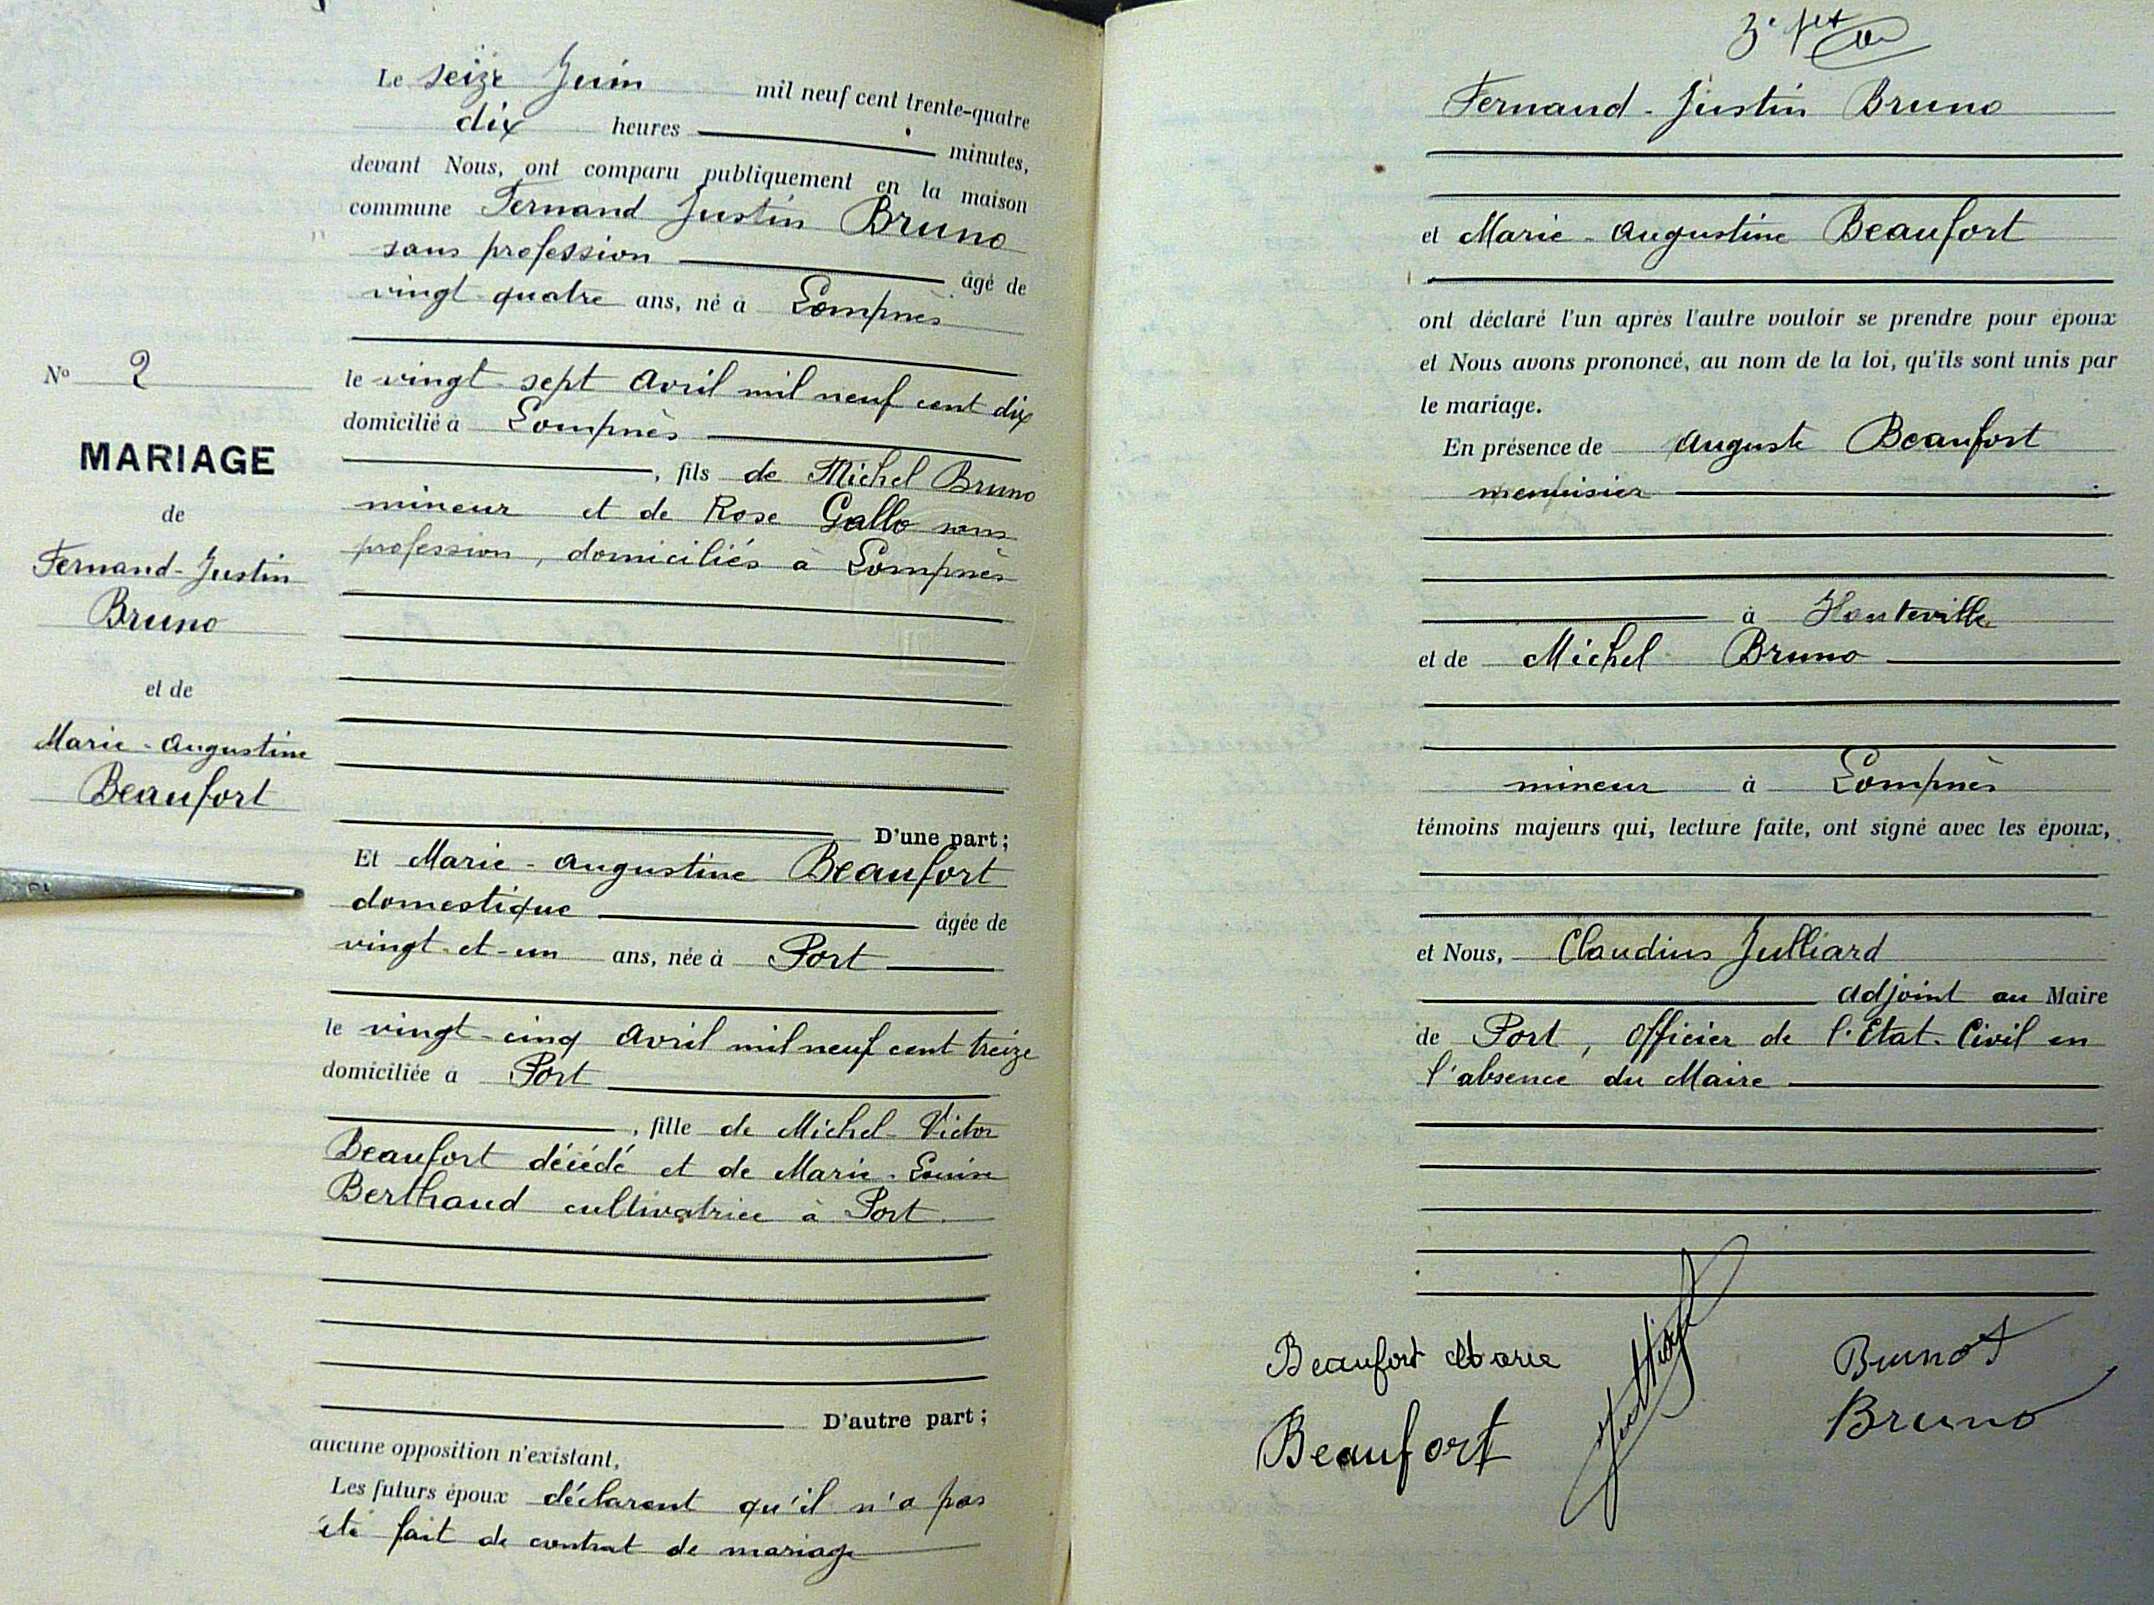 Le seize Juin mil neuf cent trente-quatre
dix heures minutes,
devant Nous, ont comparu publiquement en la maison
commune Fernand Justin Bruno
sans profession âgé de
vingt-quatre ans, né à Lompnès
le vingt-sept Avril mil neuf cent dix
domicilié à Lompnès
, fils de Michel Bruno
mineur et de Rose Gallo sans
profession, domiciliés à Lompnès
D'une part ;
Et Marie-Augustine Beaufort
domestique âgée de
vingt-et-un ans, née à Port
le vingt-cinq Avril mil neuf cent treize
domiciliée à Port
, fille de Michel-Victor
Beaufort décédé et de Marie-Louise
Berthaud cultivatrice à Port
D'autre part ;
aucune opposition n'existant,
Les futurs époux déclarent qu'il n'a pas
été fait de contrat de mariage
No 2
MARIAGE
de
Fernand-Justin
Bruno
et de
Marie-Augustine
Beaufort
Fernand-Justin Bruno
et Marie-Augustine Beaufort
ont déclaré l'un après l'autre vouloir se prendre pour époux
et Nous avons prononcé, au nom de la loi, qu'ils sont unis par
le mariage.
En présence de Auguste Beaufort
menuisier
à Hauteville
et de Michel Bruno
mineur à Lompnès
témoins majeurs qui, lecture faite, ont signé avec les époux,
et Nous, Claudius Julliard
adjoint au Maire
de Port, Officier de l'Etat-Civil en
l'absence du Maire
Beaufort Marie
Beaufort
Julliard
Bruno f
Bruno